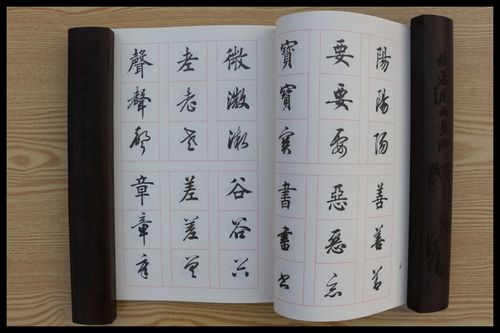 陽陽陽善善善
要要要惡惡惡
寶寶寶書書書
微微微谷谷谷
老老老差差差
聲聲聲章章章